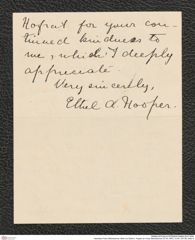 for your con-
tinued kindness to
me, which I deeply
appreciate.
Very sincerely,
Ethel A. Hooper.